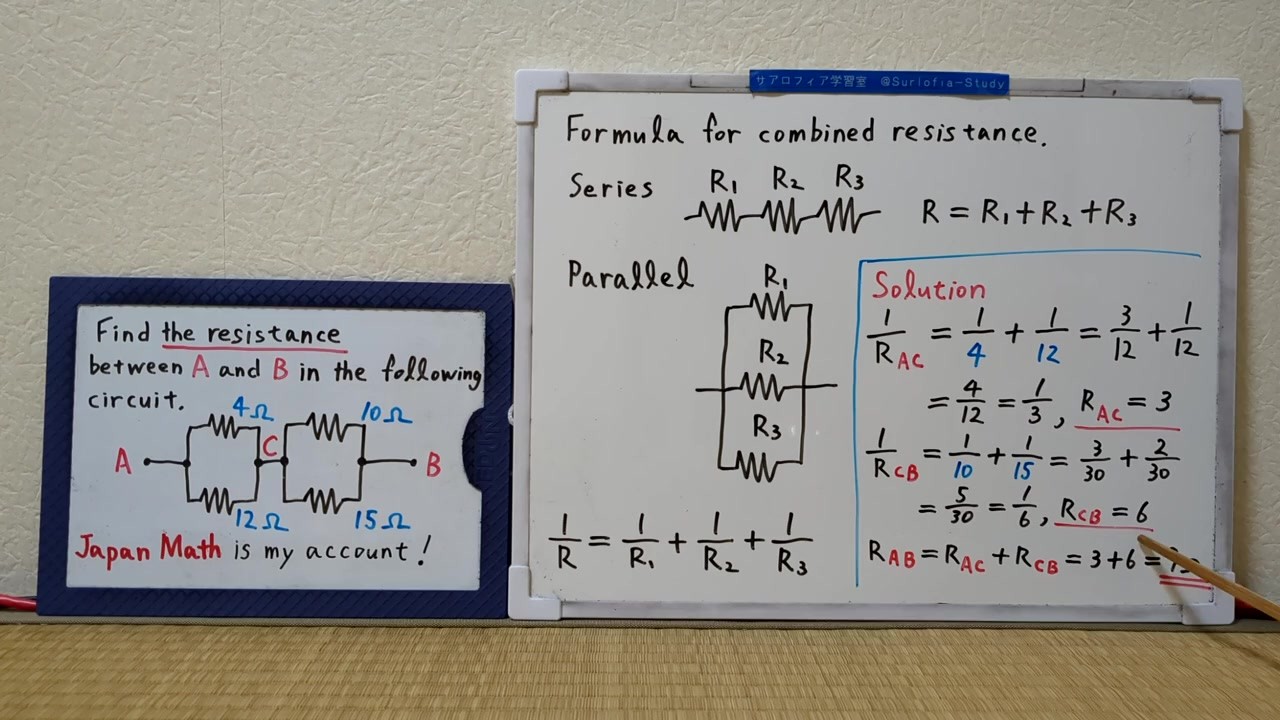 Find the resistance
between A and B in the following
circuit.
4Ω 10Ω
A C B
12Ω 15Ω
Japan Math is my account!
サアロフィア学習室 @Surlofia-Study
Formula for combined resistance.
Series R₁ R₂ R₃ R = R₁ + R₂ + R₃
Parallel
R₁
R₂
R₃
1/R = 1/R₁ + 1/R₂ + 1/R₃
Solution
1/R_AC = 1/4 + 1/12 = 3/12 + 1/12
= 4/12 = 1/3, R_AC = 3
1/R_CB = 1/10 + 1/15 = 3/30 + 2/30
= 5/30 = 1/6, R_CB = 6
R_AB = R_AC + R_CB = 3 + 6 =